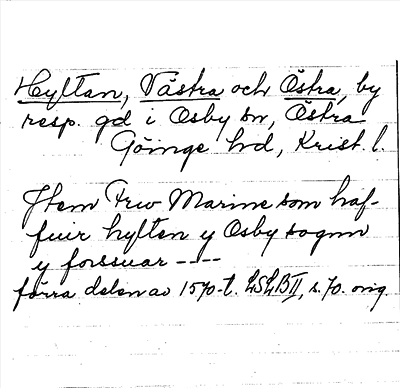 Hyltan, Västra och Östra, by
resp. gd i Osby sn, Östra
Göinge hd, Krist. l.
Jtem Frw Marine som haf-
fuir hylten y Osby sognn
y forssuar ----
förra delen av 1570-t. LSLB II, s. 70. orig.